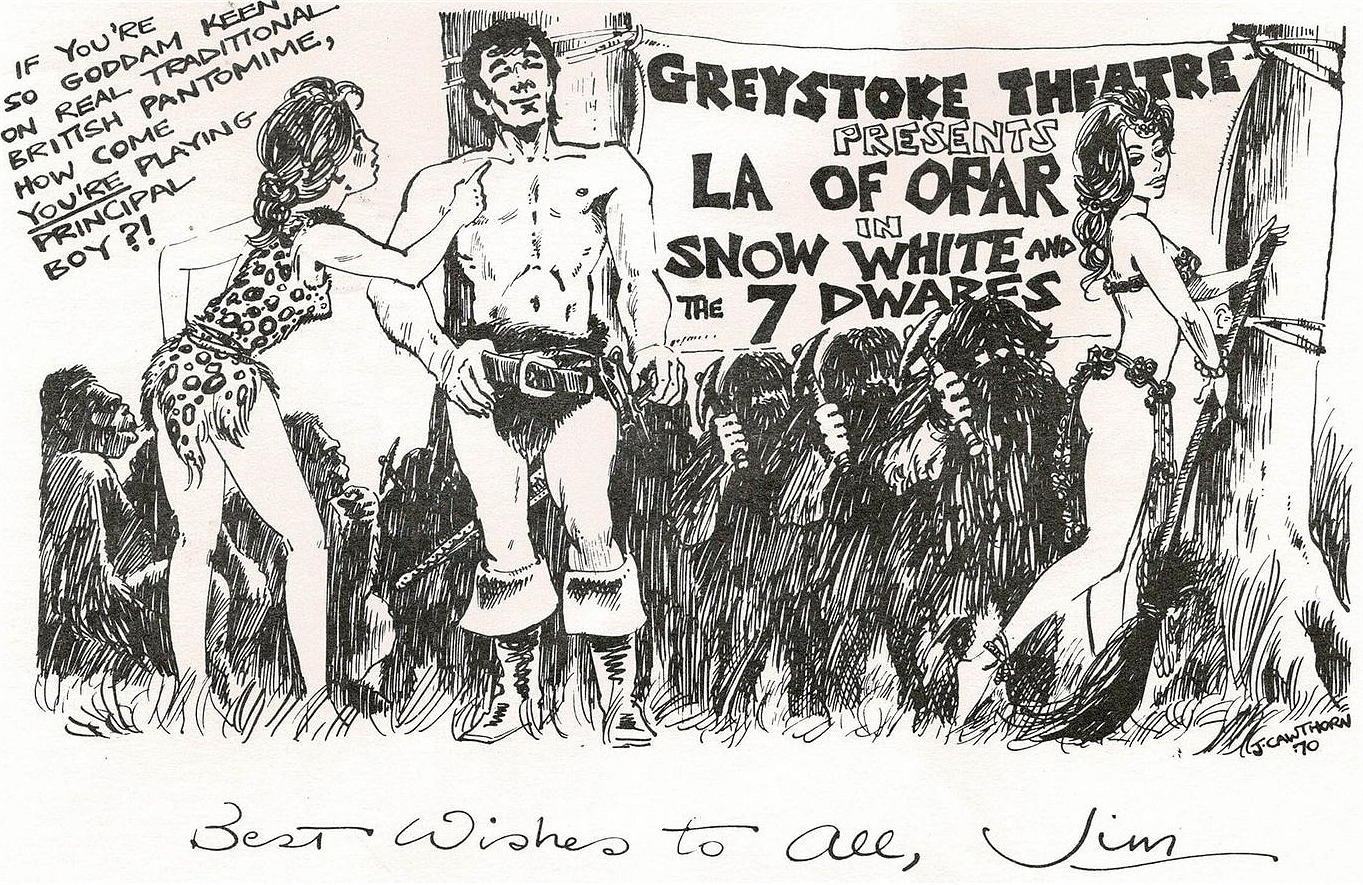 IF YOU'RE
SO GODDAM KEEN
ON REAL TRADITIONAL
BRITISH PANTOMIME,
HOW COME
YOU'RE PLAYING
PRINCIPAL
BOY?!
GREYSTOKE THEATRE
PRESENTS
LA OF OPAR
IN
SNOW WHITE AND
THE 7 DWARFS
J.CAWTHORN
'70
Best Wishes to All, Jim